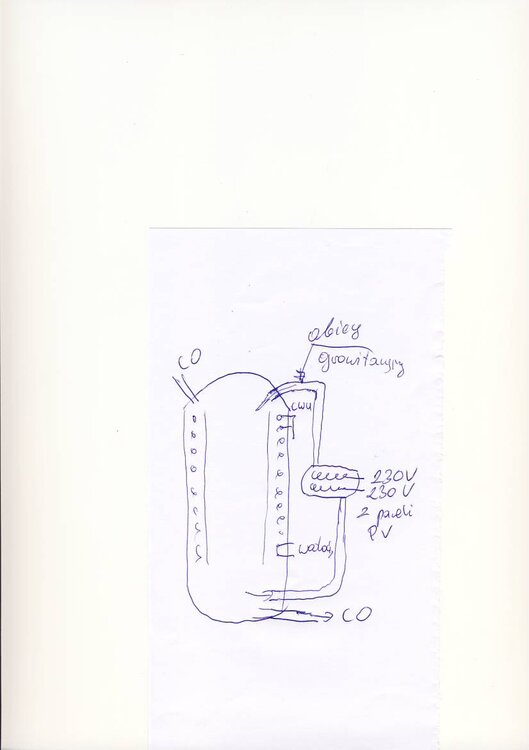 obieg
grawitacyjny
CO
CWU
230V
230V
2 paneli
PV
CO